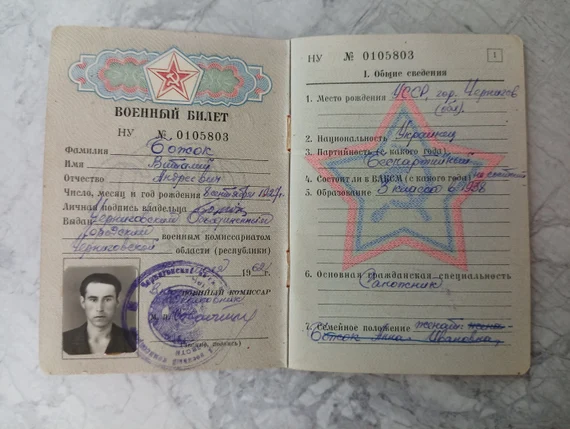 ВОЕННЫЙ БИЛЕТ
НУ № 0105803
Фамилия Божок
Имя Виталий
Отчество Андреевич
Число, месяц и год рождения 1927г
Личная подпись владельца
Выдан Черниговским Объединенным
Городским военным комиссариатом
Черниговской области (республики)
1962 г.
Военный комиссар
Подполковник
НУ № 0105803
1
I. Общие сведения
1. Место рождения УССР, гор. Чернигов
(обл).
2. Национальность Украинец
3. Партийность (с какого года)
Беспартийный
4. Состоял ли в ВЛКСМ (с какого года) не состоял
5. Образование 3 класса в 1938
6. Основная гражданская специальность
Сапожник
7. Семейное положение женат: жена-
Божок Анна Ивановна